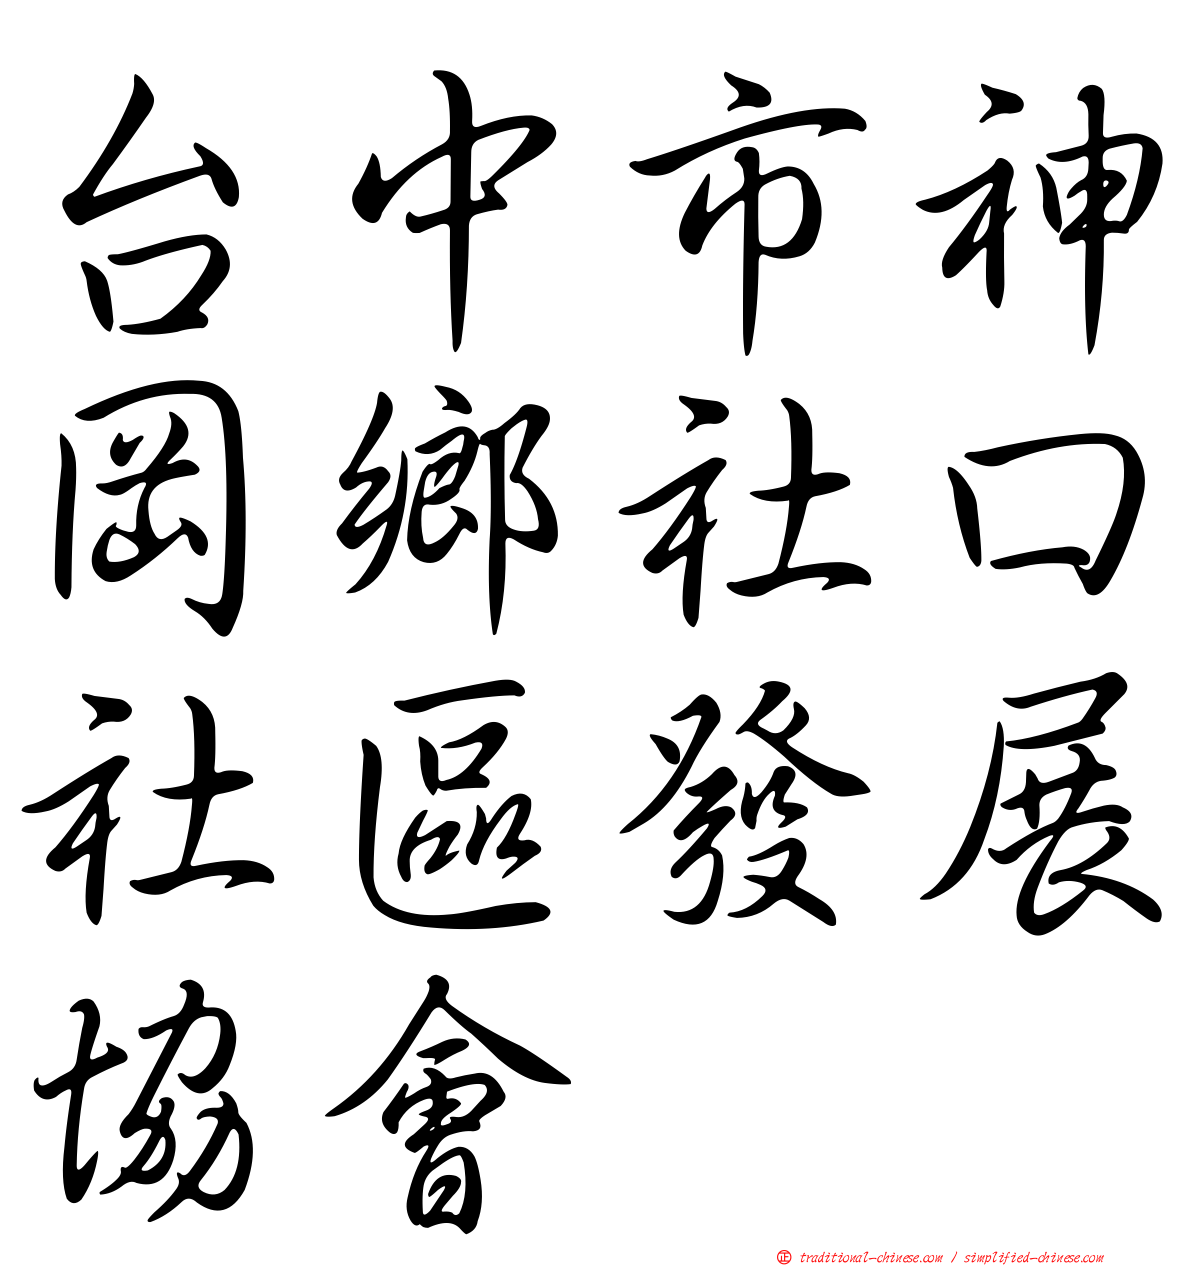 台中市神
岡鄉社口
社區發展
協會
㊣ traditional-chinese.com / simplified-chinese.com